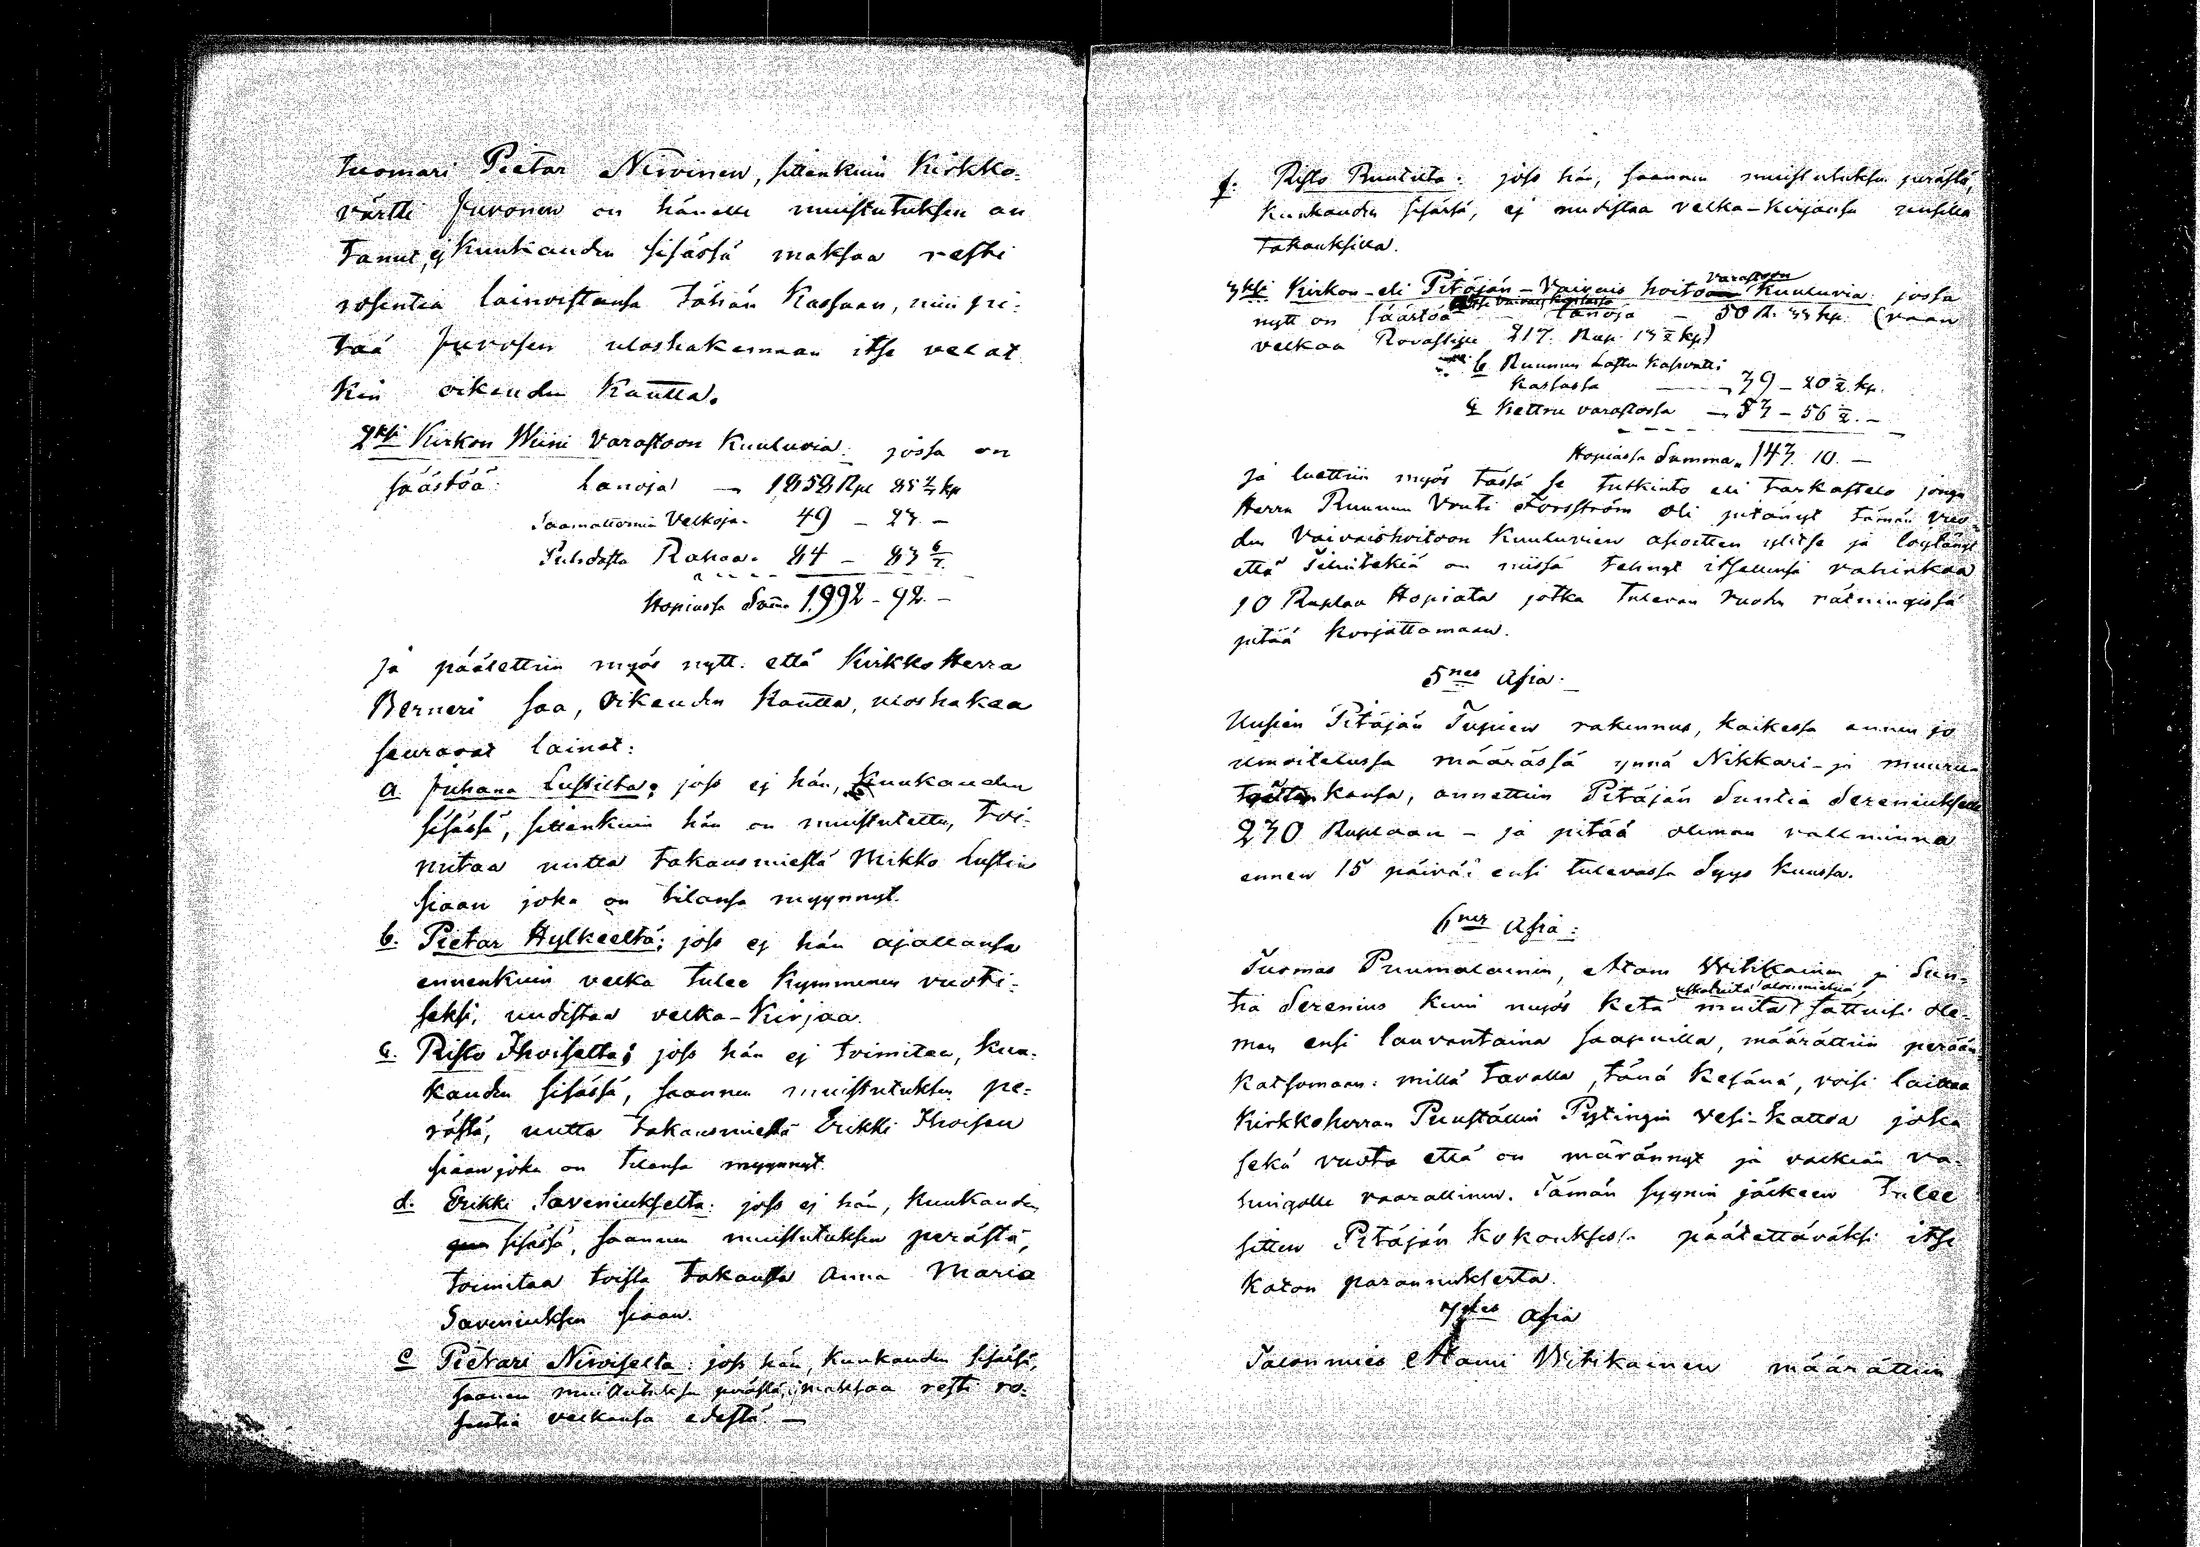 Tuomari Pietar Nirvinen, sittenkuin Kirkko-
värtti Juvonen on hänelle muistutuksen an
tanut, ej Kuukauden sisässä maksaa resti
rosentia lainoistansa tähän Kassaan, niin pi-
tää Juvosen uloshakemaan itse velat
kin oikeuden Kautta.
2ksi Kirkon Wiini Varastoon Kuuluvia: jossa on
säästöä: Lanoja — 1,858 Rpl 85 2/7 kp
Saamattomia Velkoja. 49 — 23. —
Puhdasta Rahaa. 84 — 83 6/7.
Hopiassa Suma 1,992 - 92. —
ja päätettiin myös nytt. että Kirkko Herra
Berneri saa, Oikeuden Kautta, uloshakea
seuravat lainat:
a. Juhana Lustilta; joss ej hän, Kuukauden
sisässä, sittenkuin hän on muistutettu, toi-
mitaa uutta takausmiestä Mikko Lustin
siaan joka on tilansa myynnyt.
b. Pietar Hylkeeltä; joss ej hän ajallansa
ennenkuin velka tulee Kymmenen vuoti-
seksi, uudistaa velka-Kirjaa.
c. Risto Ihoiselta; joss hän ej toimitaa, Kuu-
kauden sisässä, saannen muistutuksen pe-
rästä, uutta takausmiestä Erikki Ihoisen
siaan joka on tilansa myynnyt.
d. Erikki Saveniukselta: joss ej hän, Kuukauden
sisässä, saannen muistutuksen perästä,
toimitaa toista takausta Anna Maria
Saveniuksen siaan.
e Pietari Nirviselta: joss hän, Kuukauden sisässä,
saanen muistutuksen perästä, maksaa resti ro-
sentia velkansa edestä. —
f. Risto Ruututa: joss hän, saannen muistutuksen perästä,
Kuukauden sisässä, ej uudistaa velka-Kirjansa uusilla
takauksilla.
3ksi Kirkon- eli Pitäjän-Vaivais hoito varastoon Kuuluvia: jossa
nytt on säästöä Lanoja — 50 R. 33 kp. (vaan
velkaa Rovastille 217. Rup. 13 1/2 kp)
b Ruunun Lasten Kasvatti
Kassassa — 39 — 20 1/2 kp.
c Kettru varastossa — 53 — 56 1/2. —
Hopiassa Summa. 143. 10. —
ja luettiin myös tässä se tutkinto eli tarkastelo jonga
Herra Ruunun Vouti Forsström oli pitänyt tämän vuo-
den Vaivaishoitoon Kuuluvien asioitten ylitse ja löytänyt
että Tilintekiä on niissä tehnyt itsellensä vahinkoa
10 Ruplaa Hopiata jotka tulevan vuoden rätningissä
pitää korjattamaan.
5nes Asia.
Uusien Pitäjän Tupien rakennus, kaikessa ennen jo
ilmoitelussa määrässä ynnä Nikkari- ja muuru-
töitten kansa, annettiin Pitäjän Suntia Sereniukselle
230 Ruplaan - ja pitää oleman vallminna
ennen 15 päivää ensi tulevassa Syys Kuussa.
6nes Asia:
Tuomas Puumalainen, Atam Witikainen ja Sun-
tia Serenius kuin myös ketä muita uskotuita talonmiehiä sattuisi ole-
man ensi lauvantaina saapuilla, määrättiin perään-
katsomaan: millä tavalla, tänä kesänä, voisi laittaa
Kirkkoherran Puuställin Pytingin Vesi-kattoa joka
sekä vuota että on märännyt ja valkian va-
hingolle vaarallinen. Tämän syynin jälkeen tulee
sitten Pitäjän kokouksessa päätettäväksi itse
Katon parannuksesta.
7mäs Asia
Talonmies Atami Witikainen määrättiin